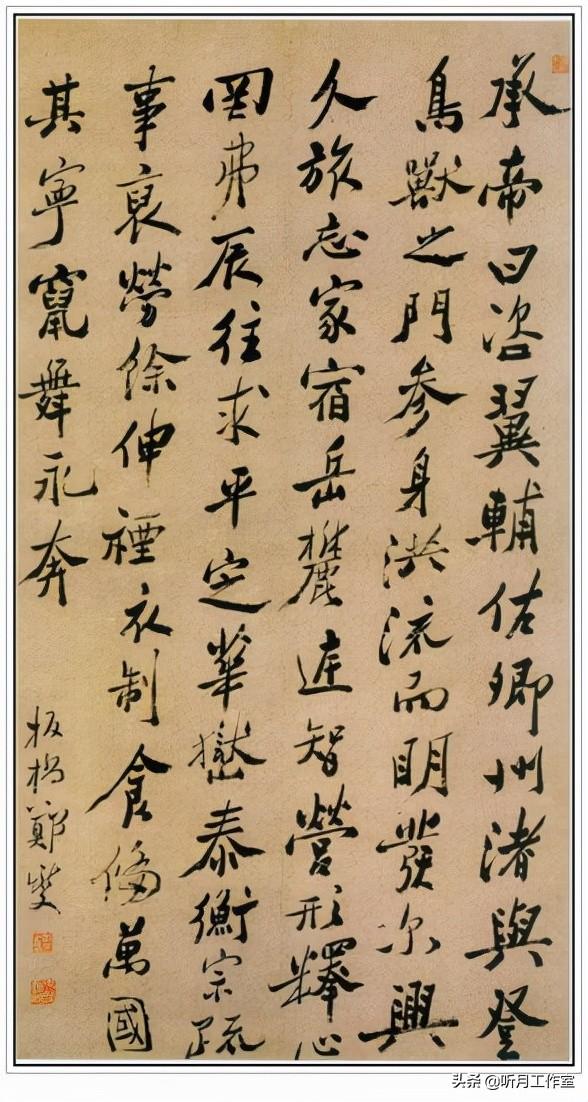 承帝曰咨翼輔佐卿州渚與登
鳥獸之門參身洪流而明發尔興
久旅忘家宿岳麓庭智營形釋心
罔弗辰往求平定華嶽泰衡宗疏
事裒勞餘伸禋衣制食俻萬國
其寧竄舞永奔
板橋鄭燮
头条 @听月工作室